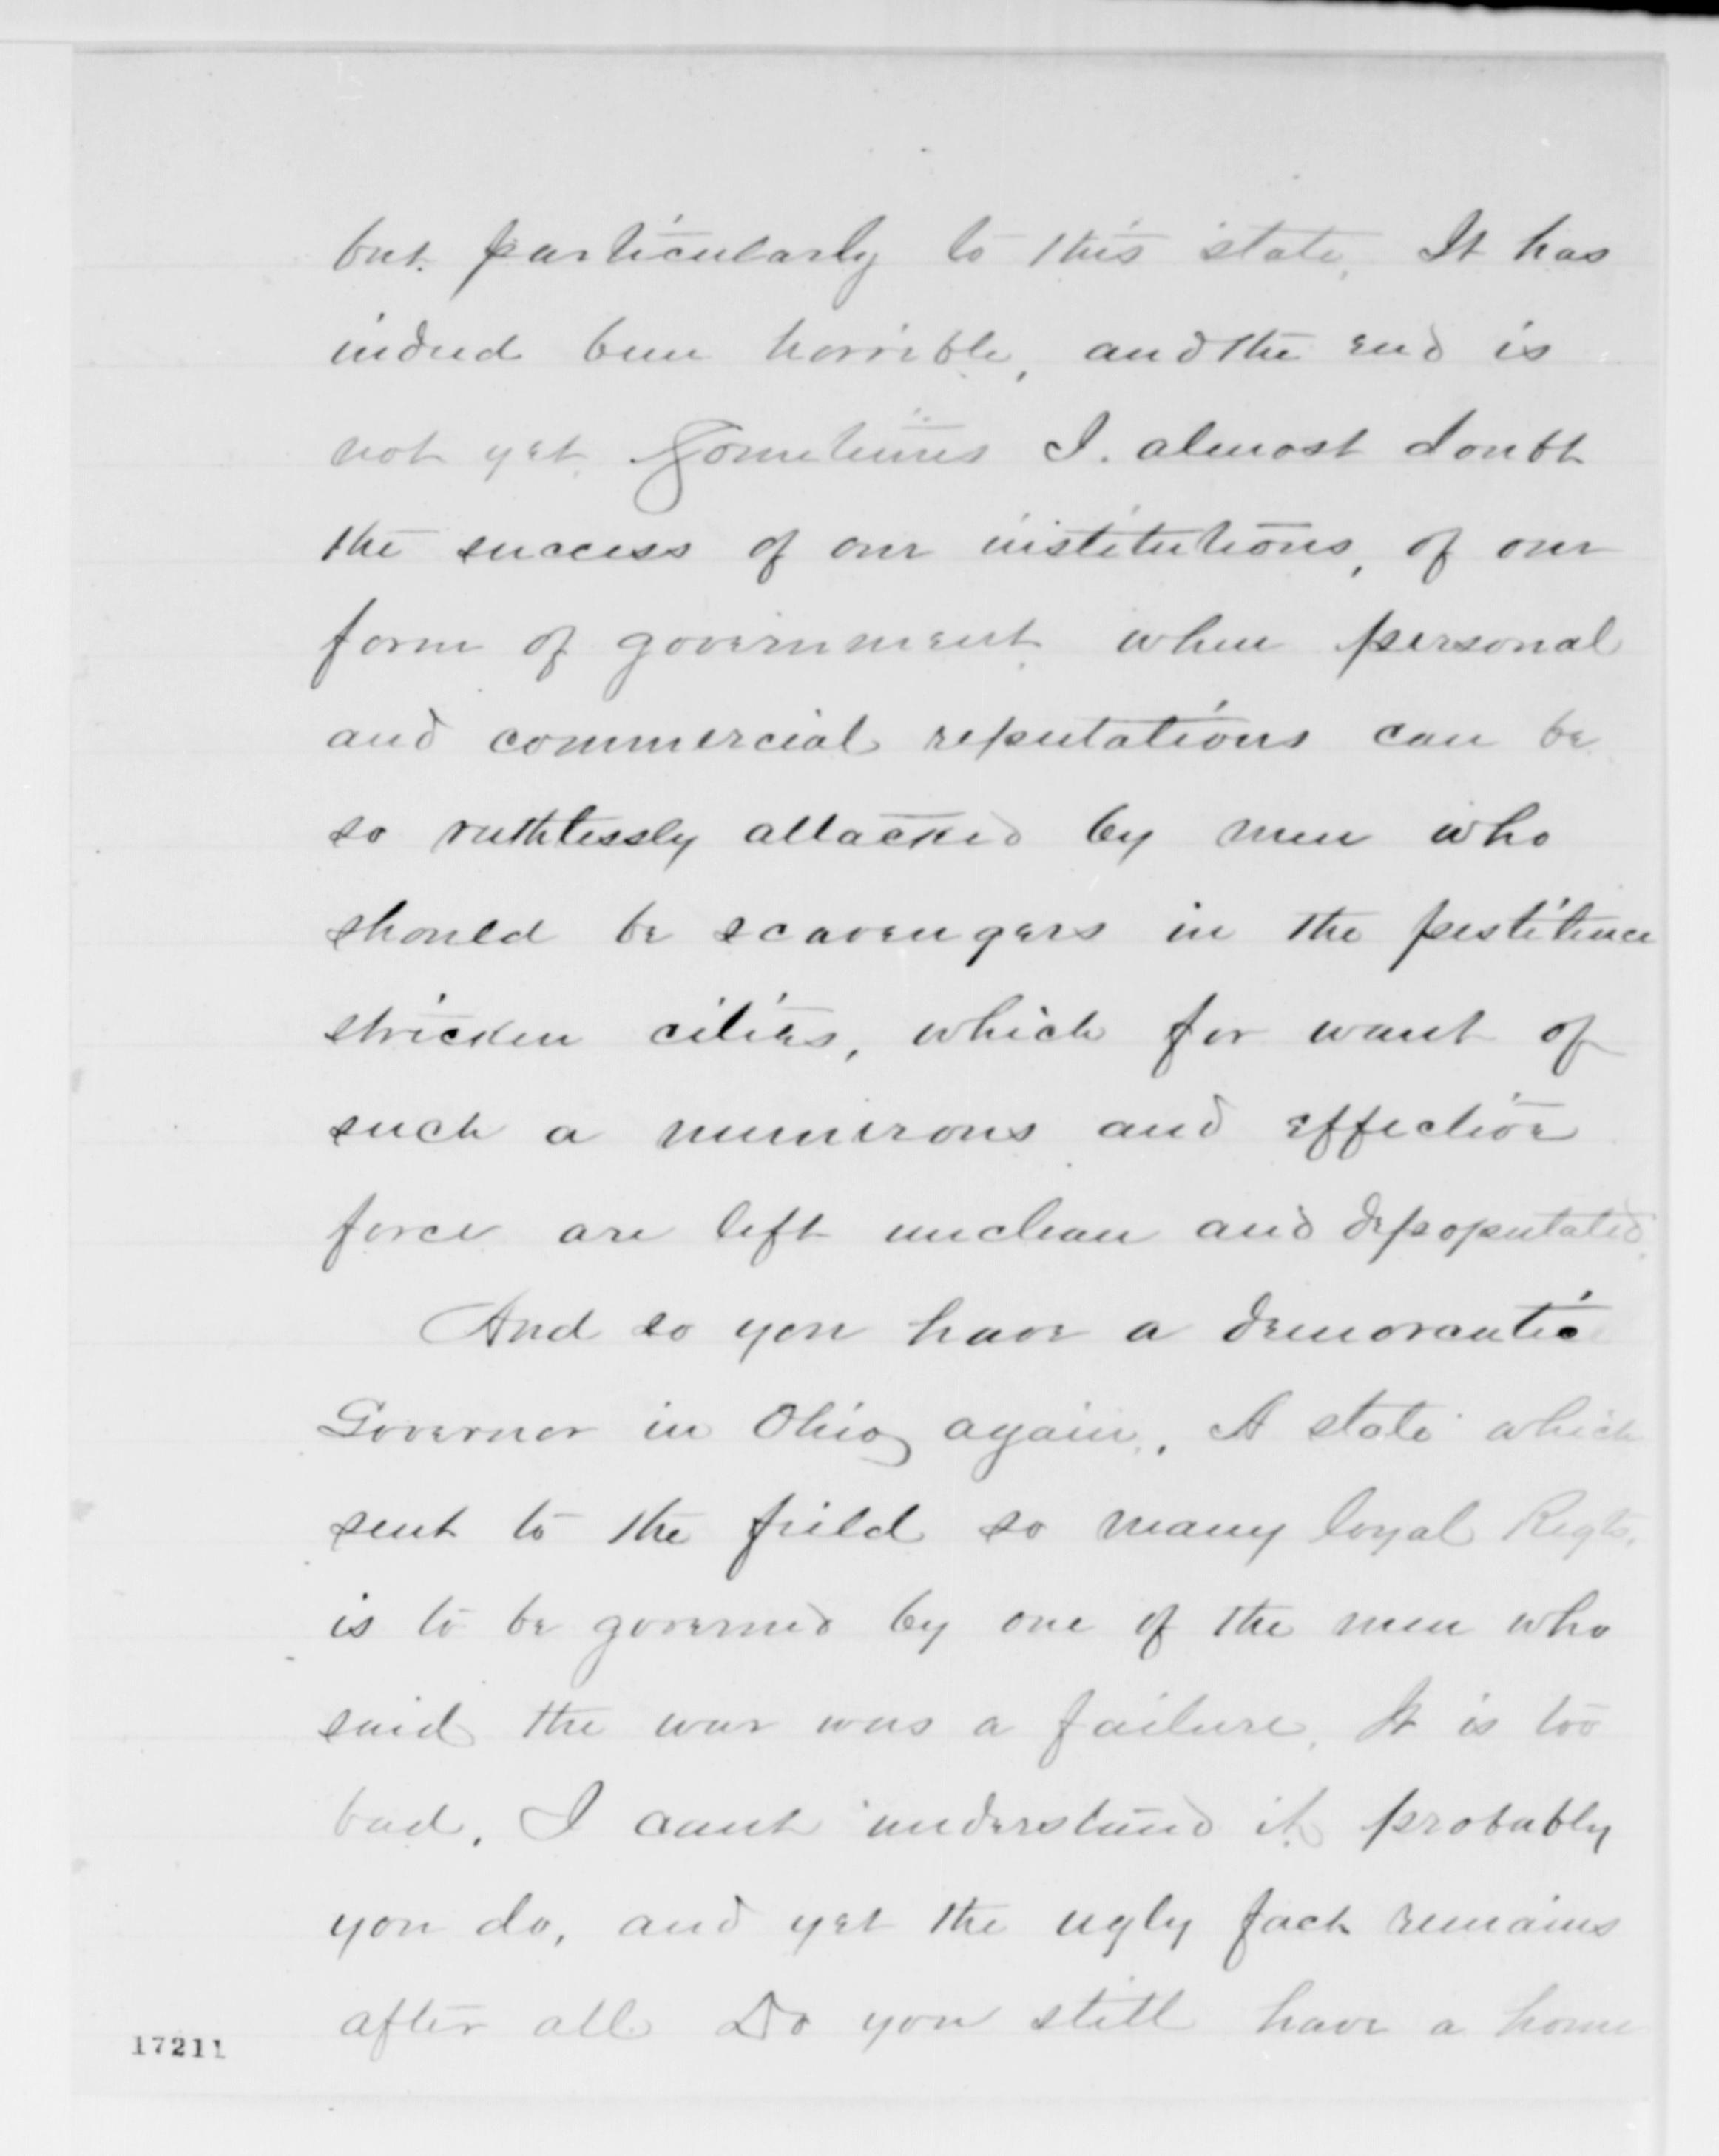 but particularly to this state. It has
indeed been horrible, and the end is
not yet. Sometimes I almost doubt
the success of our institutions, of our
form of government when personal
and commercial reputations can be
so ruthlessly attacked by men who
should be scavengers in the pestilence
stricken cities, which for want of
such a numerous and effective
force are left unclean and depopulated.
And so you have a democratic
Governor in Ohio again. A state which
sent to the field so many loyal Regts.
is to be governed by one of the men who
said the war was a failure. It is too
bad. I cant understand it probably
you do, and yet the ugly fact remains
after all Do you still have a home
17211